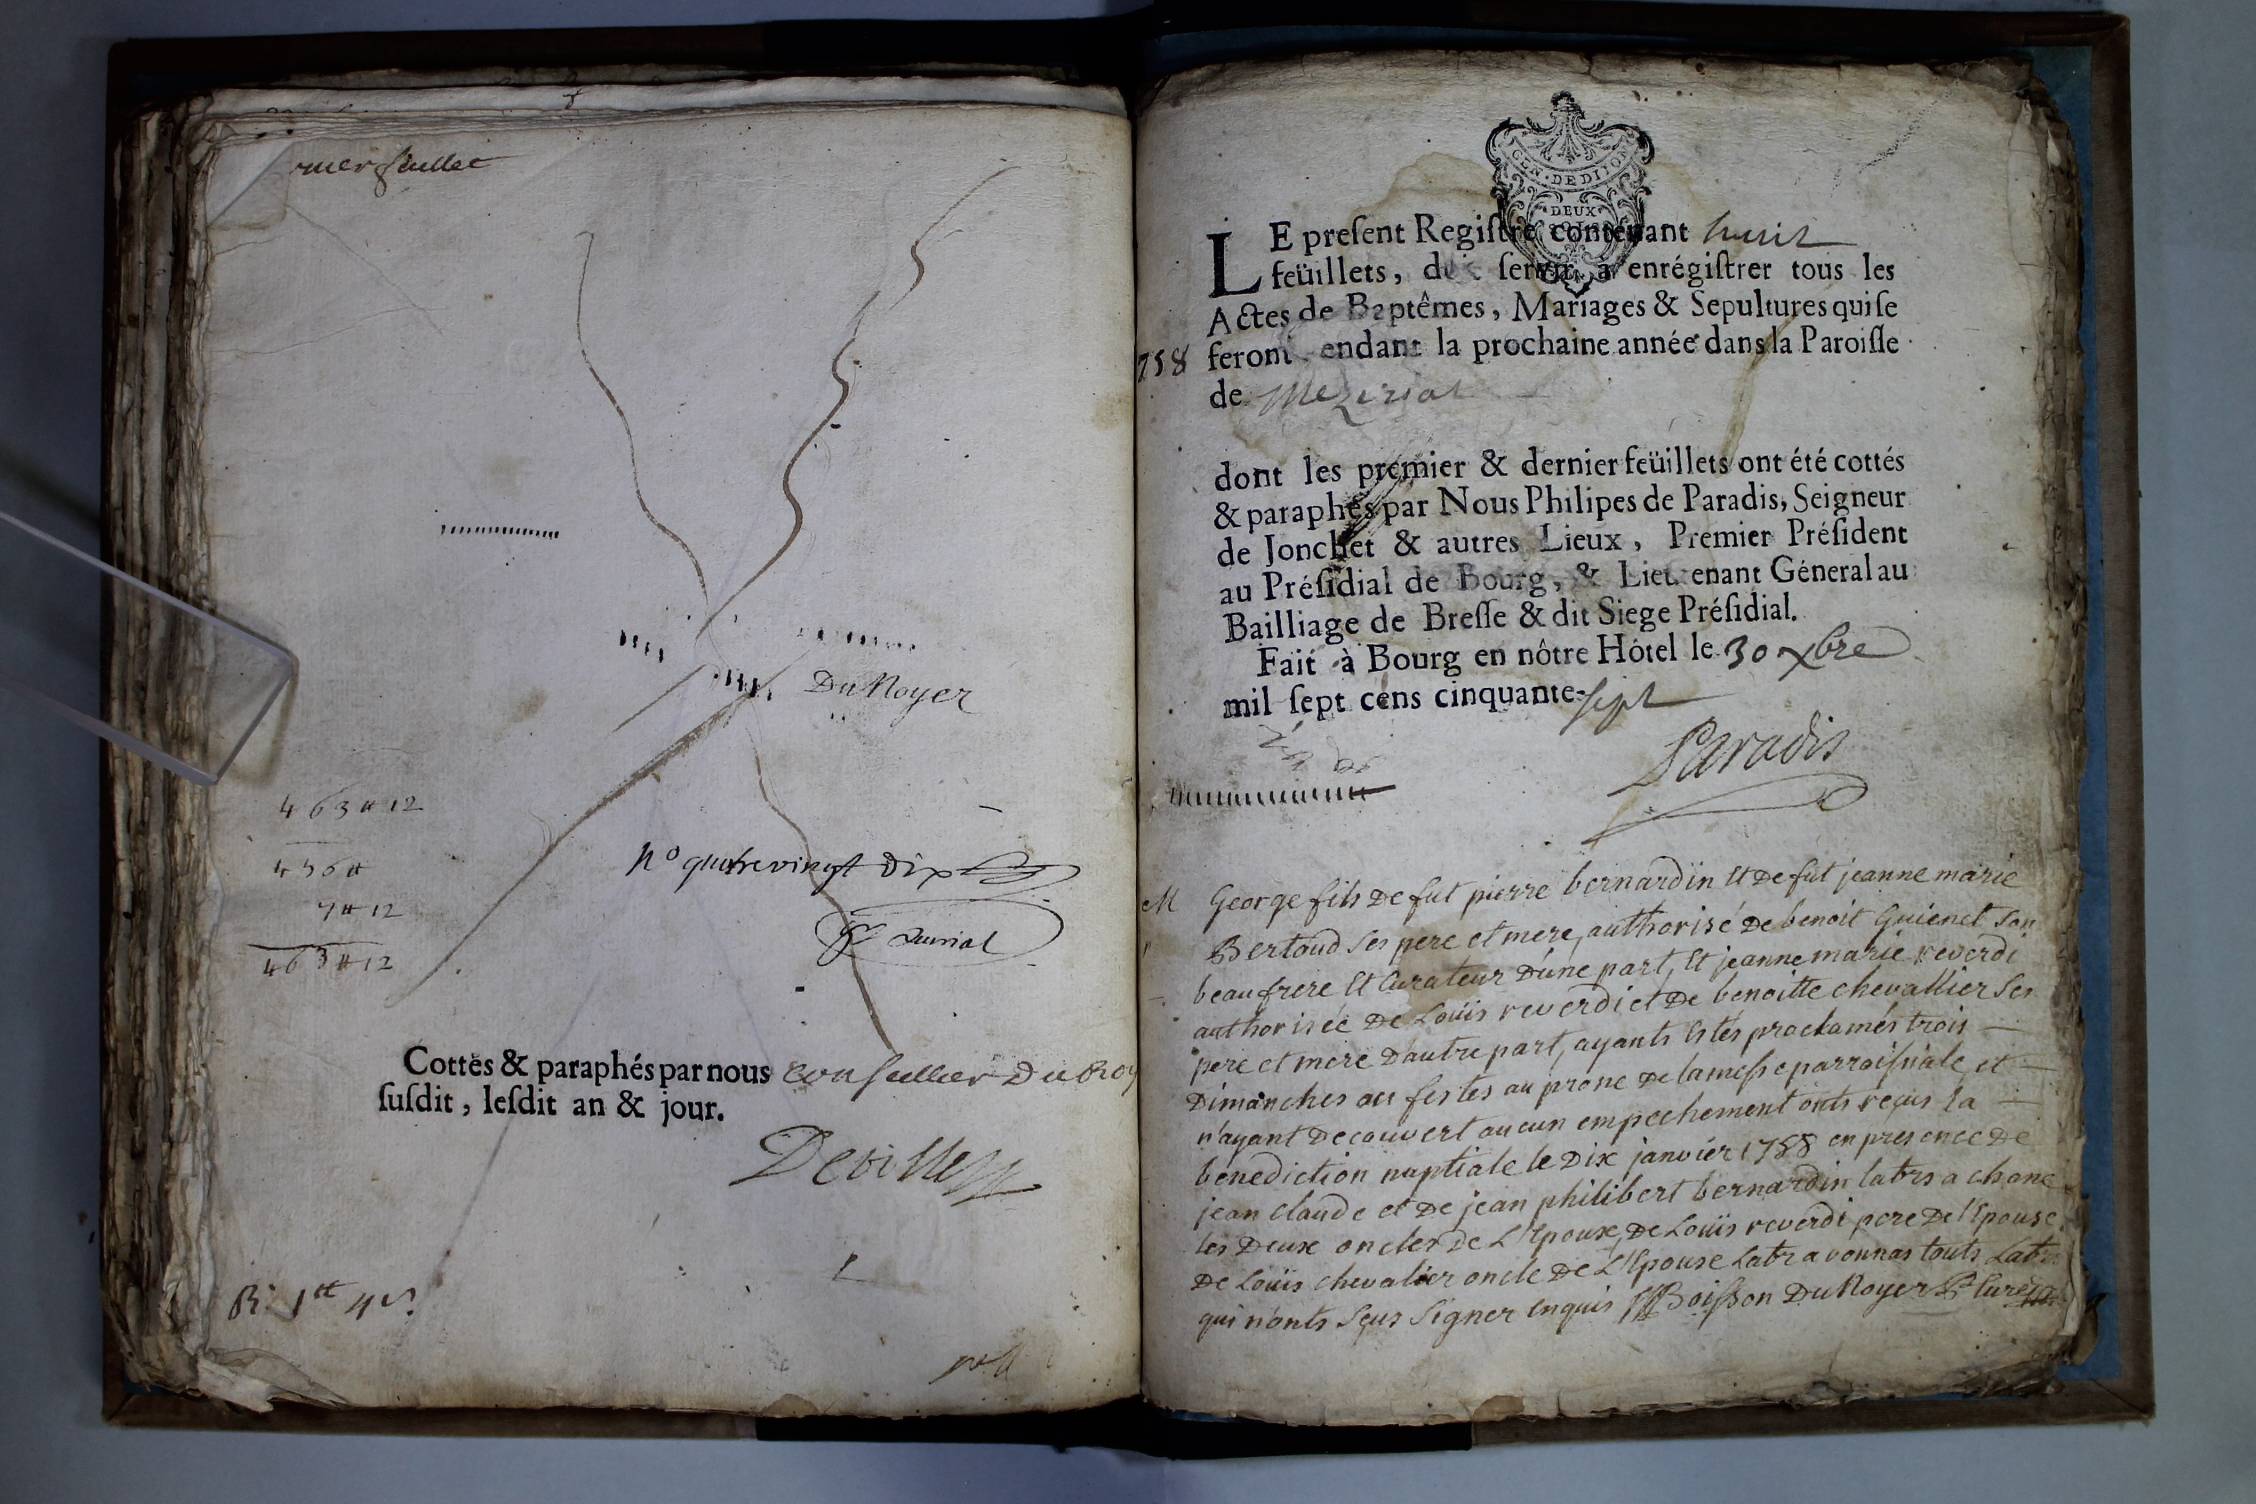 feullet
DuNoyer
463 tt 12
456 tt
7 tt 12
463 tt 12
N° quatrevingt Dix
Cottés & paraphés par nous Conseillier Du Roy
susdit, lesdit an & jour.
Deville
R: 1tt 4s
GEN. DE DIJON
DEUX
LE present Registre contenant huit
feüillets, doit servir à enrégistrer tous les
Actes de Baptêmes, Mariages & Sepultures qui se
feront pendant la prochaine année dans la Paroisse
758
de Meziriat
dont les premier & dernier feüillets ont été cottés
& paraphés par Nous Philipes de Paradis, Seigneur
de Jonchet & autres Lieux, Premier Président
au Présidial de Bourg, & Lieutenant Géneral au
Bailliage de Bresse & dit Siege Présidial.
Fait à Bourg en nôtre Hôtel le 30 xbre
mil sept cens cinquante-sept
Paradis
M George fils De fut pierre bernardin Et De fut jeanne marie
Bertoud ses pere et mere, authorisé De benoit Guienet son
beaufrere Et Curateur D'une part, Et jeanne marie reverdi
authorisée De Loüis reverdi et De benoitte chevallier ses
pere et mere D'autre part, ayants Estés proclamés trois
Dimanches ou festes au prone De la messe parroissiale, et
n'ayant Decouvert aucun empechement onts reçus la
benediction nuptiale le Dix janviér 1758 en presence De
jean claude et De jean philibert bernardin labrs a chane
les Deux oncles De L'Epoux, De Loüis reverdi pere De l'Epouse
De Loüis chevalier oncle De L'Epouse Labr a vonnas touts Labrs
qui n'onts sçus signer Enquis Boisson DuNoyer Curé